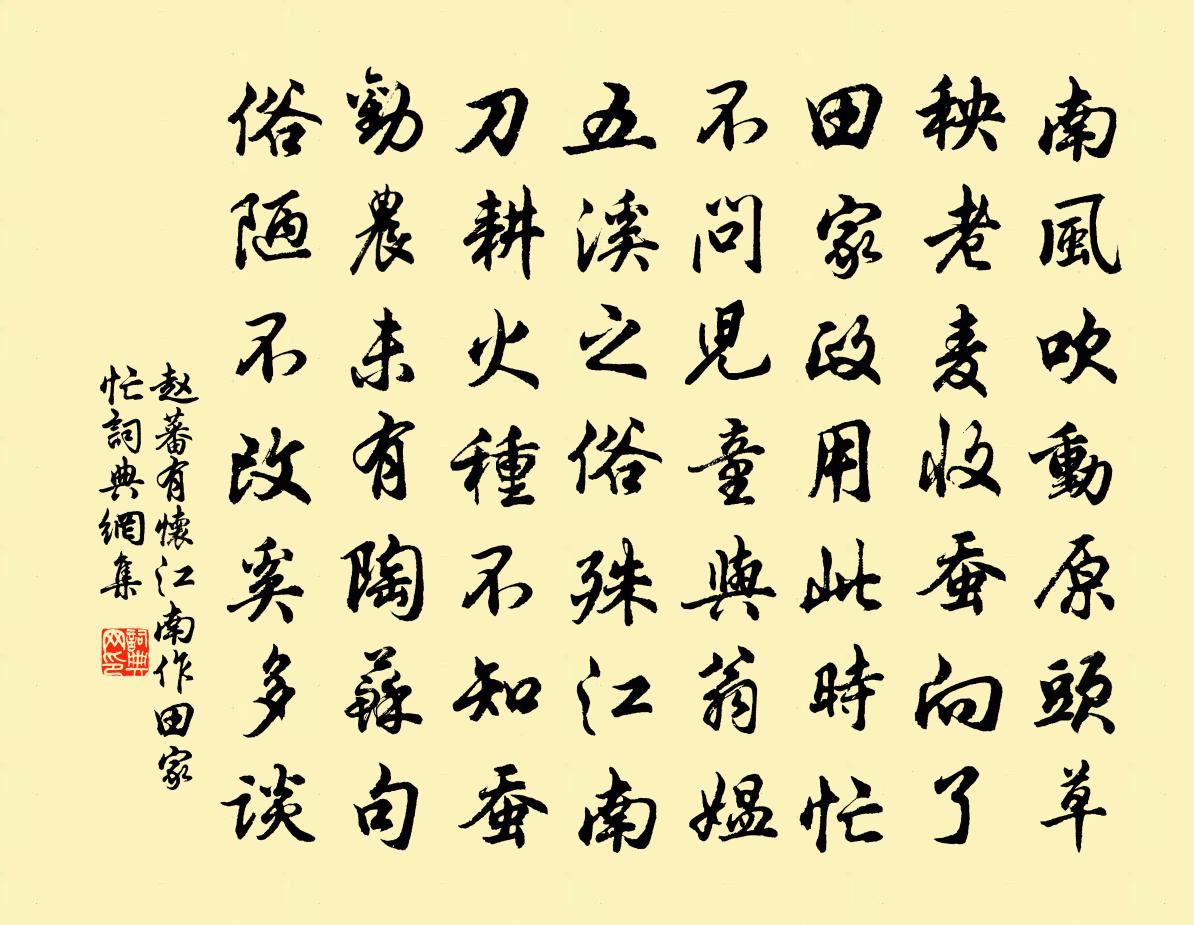 南風吹動原頭草
秧老麦收蚕向了
田家政用此時忙
不問児童與翁媼
五溪之俗殊江南
刀耕火種不知蚕
勸農未有陶蘇句
俗陋不改奚多談
赵蕃有懷江南作田家
忙詞典網集
詞典
网印